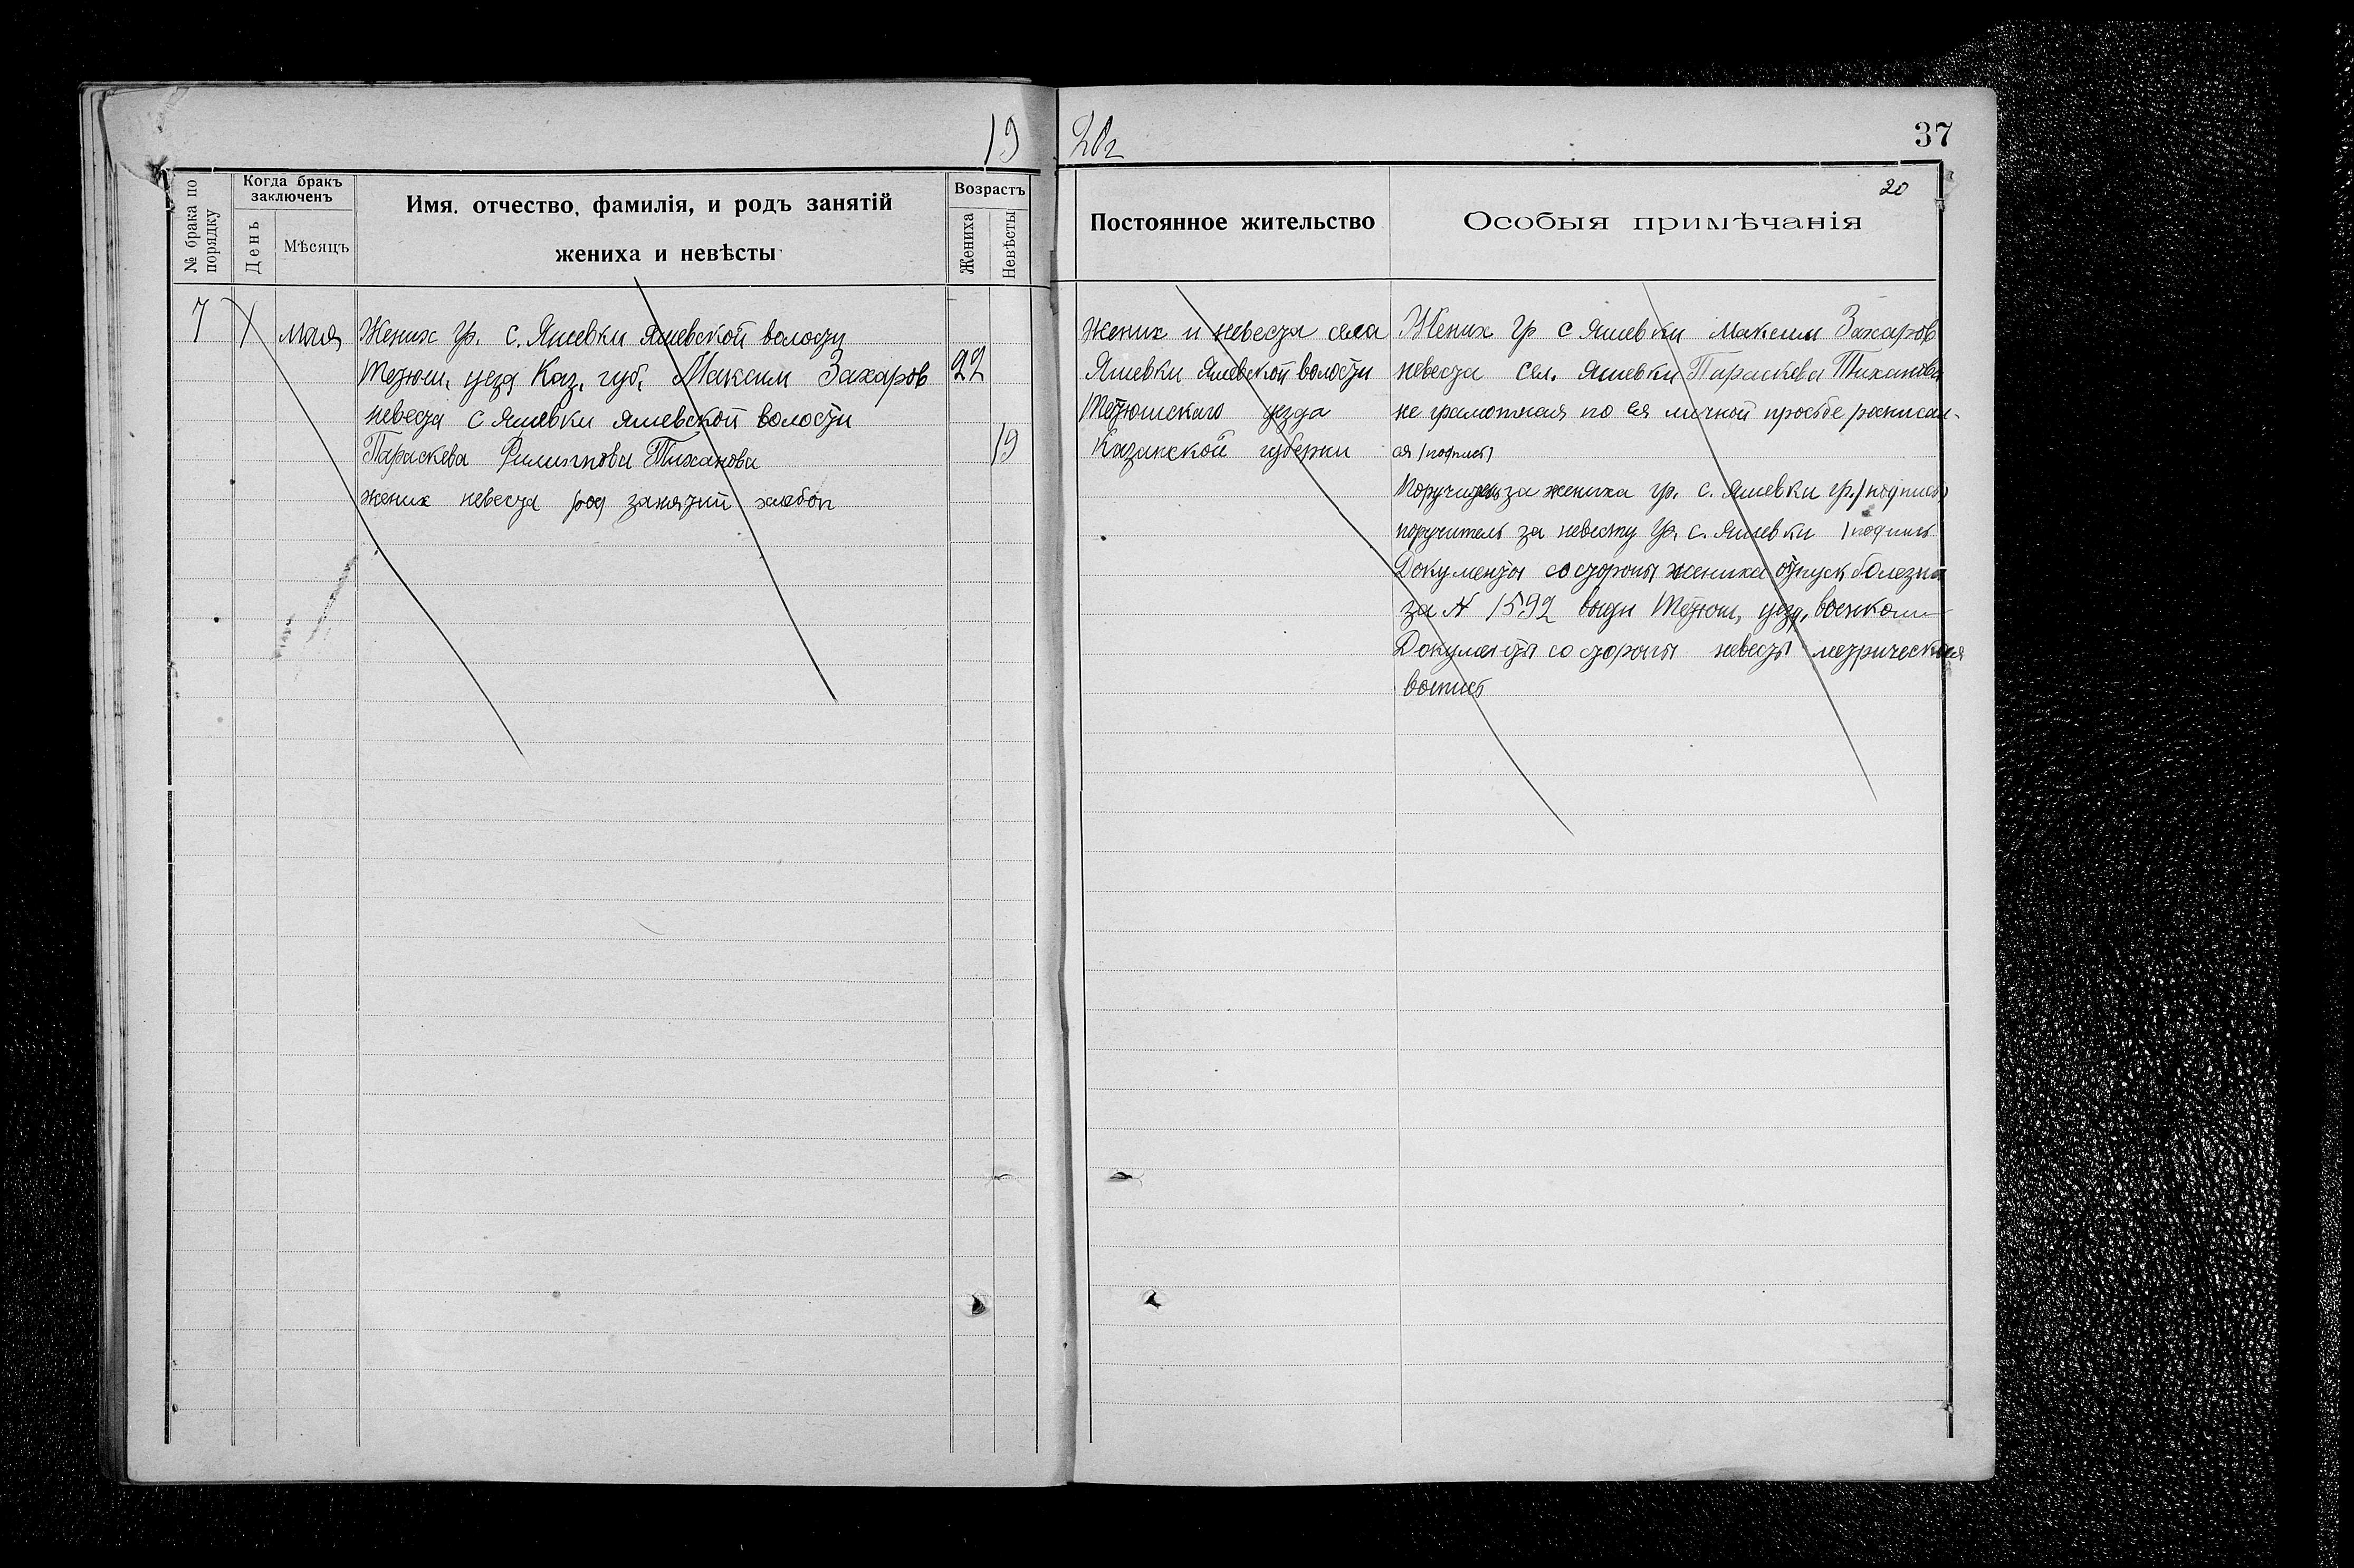 19 20г
37
20
№ брака по порядку
Когда бракъ заключенъ
День
Мѣсяцъ
Имя, отчество, фамилія, и родъ занятій
жениха и невѣсты
Возрастъ
Жениха
Невѣсты
Постоянное жительство
Особыя примѣчанія
7 1 мая Жених гр. с. Яшевки Яшевской волости
Тетюш. уезд Каз. губ. Максим Захаров 22
невеста с Яшевки Яшевской волости
Параскева Филипнова Тиханова 19
жених невеста род занятий хлебоп
Жених и невеста села
Яшевки Яшевской волости
Тетюшскаго уезда
Казанской губерни
Жених гр с Яшевки Максим Захаров
невеста сел. Яшевки Параскева Тиханова
не грамотная по ея личной просьбе росписал-
ся (подпись)
Поручитель за жениха гр. с. Яшевки гр. (подпись)
поручитель за невесту гр. с. Яшевки (подпись
Документы со стороны жениха отпуск болезни
за № 1592 выдн Тетюш, уезд, военком
Документы со стороны невесты метрическая
выпись